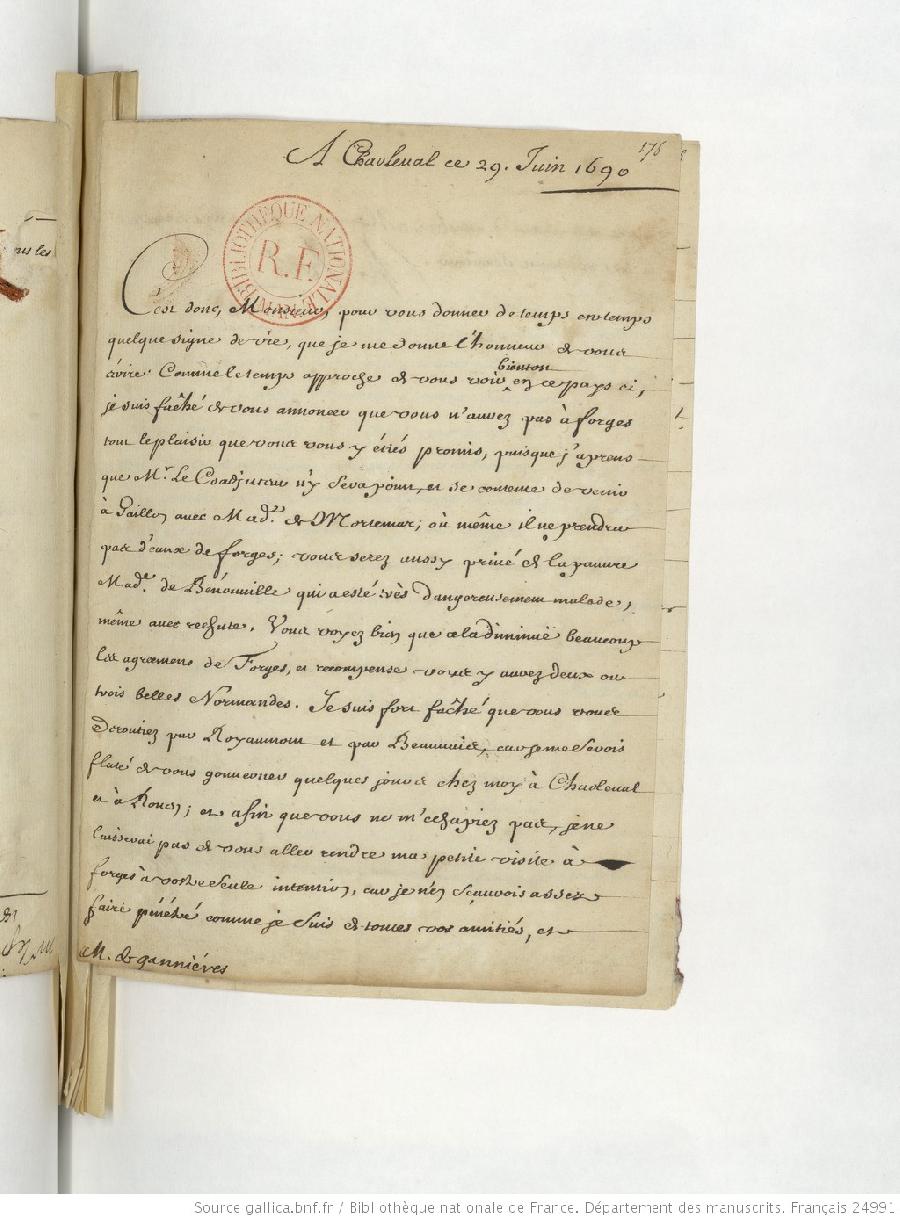 176
A Charleual ce 29. Juin 1690
BIBLIOTHEQUE NATIONALE
R.F.
MAN.
C'est donc, Monsieur, pour vous donner de temps en temps
quelque signe de vie, que je me donne l'honneur de vous
écrire. Comme le temps approche de vous voir bientost en ce pays ci,
je suis fâché de vous annoncer que vous n'aurez pas à forges
tout le plaisir que vous vous y étiés promis, puisque j'aprens
que Mr. Le Coadjuteur n'y sera point, et se contente de venir
à Gaillon avec Made. de Mortemar, où même il ne prendra
pas d'eaux de forges; vous serez aussy privé de la pauure
Made. de Benouuille qui a esté très dangereusement malade,
même avec rechute. Vous voyez bien que cela diminüe beaucoup
les agremens de Forges, en recompense vous y aurez deux ou
trois belles Normandes. Je suis fort fâché que vous vous
déroutiez par Royaumont et par Beauuais, car je me serois
flaté de vous gouuerner quelques jours chez moy à Charleual
et à Rouen; et afin que vous ne m'echapiez pas, je ne
laisserai pas de vous aller rendre ma petite visite à
forges à vostre seule intention, car je n'en sçaurois assez
faire pénétré comme je suis de toutes vos amitiés, et
M. de gannières
Source gallica.bnf.fr / Bibliothèque nationale de France. Département des manuscrits. Français 24991